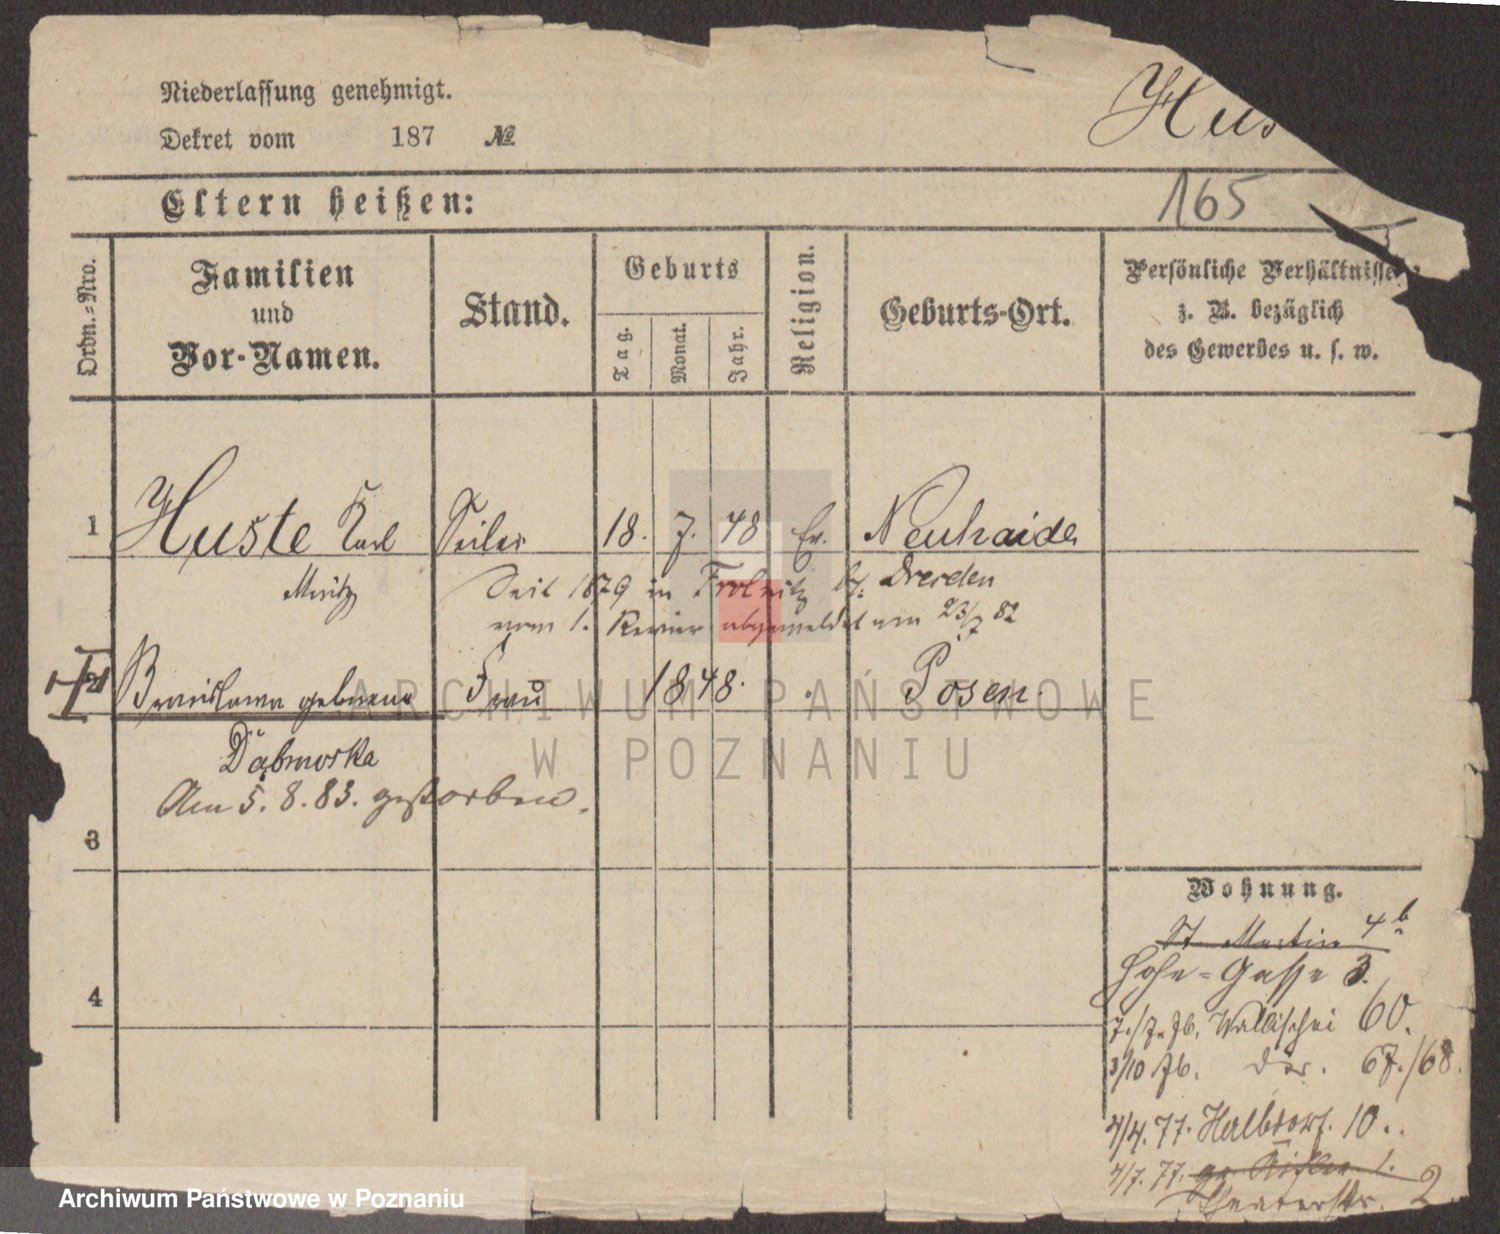 Niederlassung genehmigt.
Dekret vom 187 №
Hus
165
Eltern heißen:
Ordn.-Nro.
Familien
und
Vor-Namen.
Stand.
Geburts
Tag.
Monat.
Jahr.
Religion.
Geburts-Ort.
Persönliche Verhältnisse
z. B. bezüglich
des Gewerbes u. s. w.
1 Huste Karl Seiler 18. 7. 48 Ev. Neuhaide
Moritz
Seit 1879 in b/. Dresden
vom 1. Revier abgemeldet am 23/7 82
2 Bronislawa geborene Frau 1848. Posen.
Dąbrowska
Am 5. 8. 83. gestorben.
3
4
Wohnung.
St. Martin 4b
Hohe-Gasse 3.
7./7. 76. Wallischei 60.
3/10 76. do. 67./68.
4/4. 77. Halbdorf. 10..
4/7. 77. gr. 1.
Theaterstr. 2
ARCHIWUM PAŃSTWOWE
W POZNANIU
Archiwum Państwowe w Poznaniu